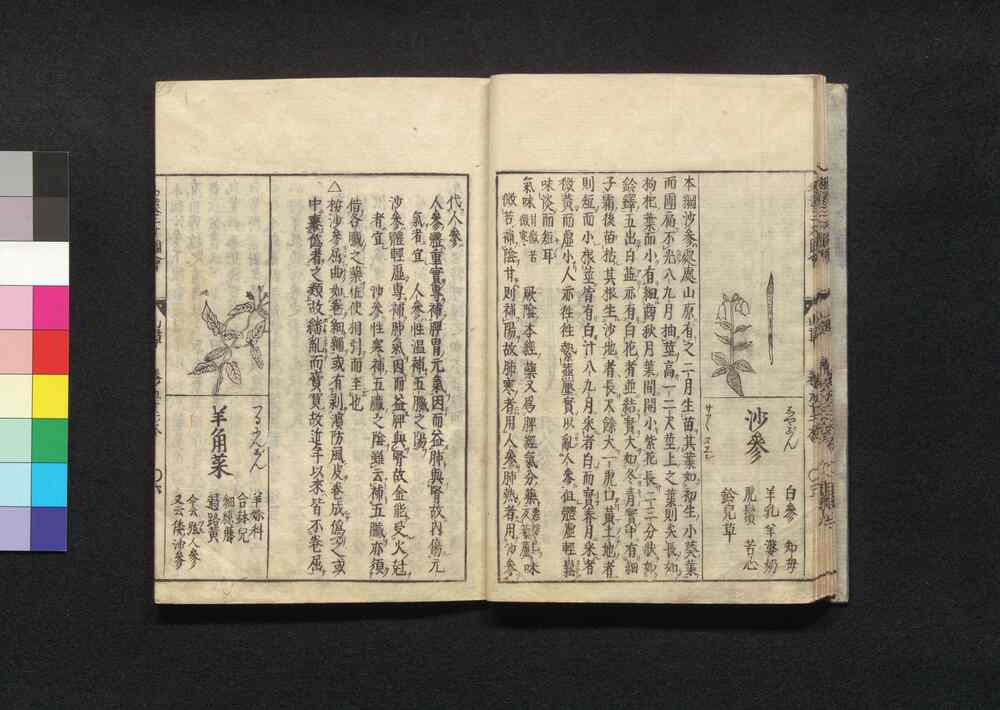 沙參
白參 知母
羊乳 羊婆奶
虎鬚 苦心
鈴兒草
本綱沙參處處山原有之二月生苗其葉如初生小葵葉
而團扁不光八九月抽莖高一二尺莖上之葉則尖長如
枸杞葉而小有細齒秋月葉間開小紫花長二三分狀如
鈴鐸五出白蕊亦有白花者並結實大如冬青實中有細
子霜後苗枯其根生沙地者長尺餘大一虎口黃土地者
則短而小根莖皆有白汁八九月采者白而實春月采者
微黃而虛小人亦徃徃縶蒸壓實以亂人參但體虛輕鬆
味淡而短耳
氣味 厥陰本經藥又爲脾經氣分藥 味
微苦補陰甘則補陽故肺寒者用人參肺熱者用沙參
代人參
人參體重實專補脾胃元氣因而益肺與腎故內傷元
氣者宜 人參性溫補五臟之陽
沙參體輕虛專補肺氣因而益脾與腎故金能受火尅
者宜 沙參性寒補五臟之陰雖云補五臟亦須
各臟之藥佐使相引而至也
△按沙參屈曲如卷 或有 防風皮卷成僞之或
中 者之類故 亂而實 故近年以來皆不卷屈
羊角菜
羊妳科
合鉢兒
細絲藤
過路黃
又云倭沙參